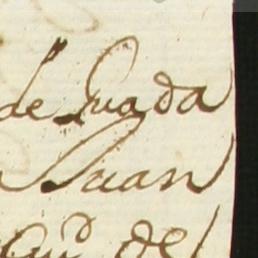 de Guada
Juan
de